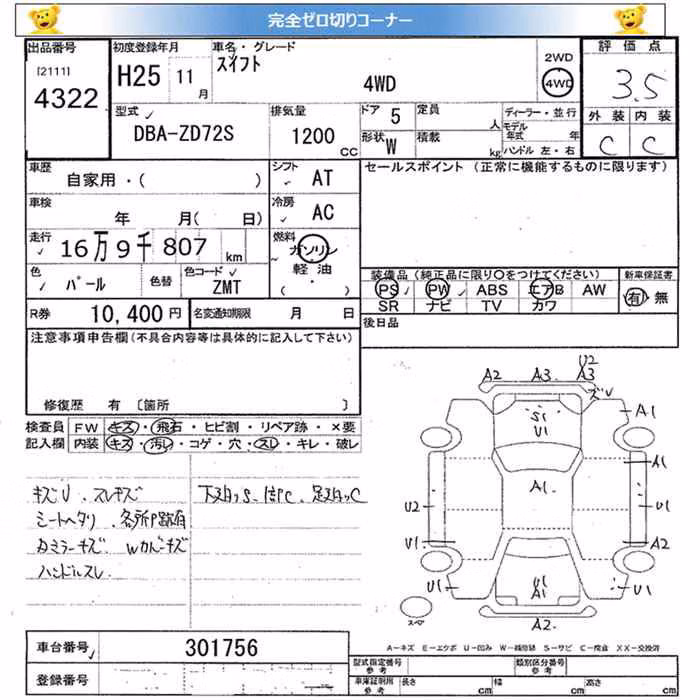 完全ゼロ切りコーナー
出品番号
[2111]
4322
初度登録年月
H25 11 月
車名・グレード
スイフト
4WD
2WD
4WD
評価点
3.5
外装 内装
C C
型式
DBA-ZD72S
排気量
1200 CC
ドア 5
定員 人
形状 W
積載 kg
ディーラー・並行
モデル年式 年
ハンドル 左・右
車歴
自家用・( )
シフト
AT
セールスポイント (正常に機能するものに限ります)
車検
年 月( 日)
冷房
AC
走行
16万9千807 km
燃料
ガソリン
軽油
( ・ )
色
パール
色替
色コード
ZMT
装備品 (純正品に限り○をつけてください)
PS PW ABS エアB AW
SR ナビ TV カワ
新車保証書
有・無
R券 10,400 円
名変通知期限 月 日
後日品
注意事項申告欄(不具合内容等は具体的に記入して下さい)
修復歴 有 〔箇所 〕
検査員記入欄
FW キズ・飛石・ヒビ割・リペア跡・×要
内装 キズ・汚レ・コゲ・穴・スレ・キレ・破レ
キズU スレキズ
シートヘタリ 各所P跡有
カミラーキズ Wカバーキズ
ハンドルスレ
下廻りS
A2 A3 U2 A3
ズU
A1
S1
U1
A1
A1
U2
U1
U1
A2
U1
U1
A1
U1
A2
スペア
A-キズ E-エクボ U-凹み W-補修跡 S-サビ C-腐食 XX-交換済
車台番号 301756
登録番号
型式指定番号 参考
類別区分番号 参考
車庫証明用 参考
長さ cm
幅 cm
高さ cm